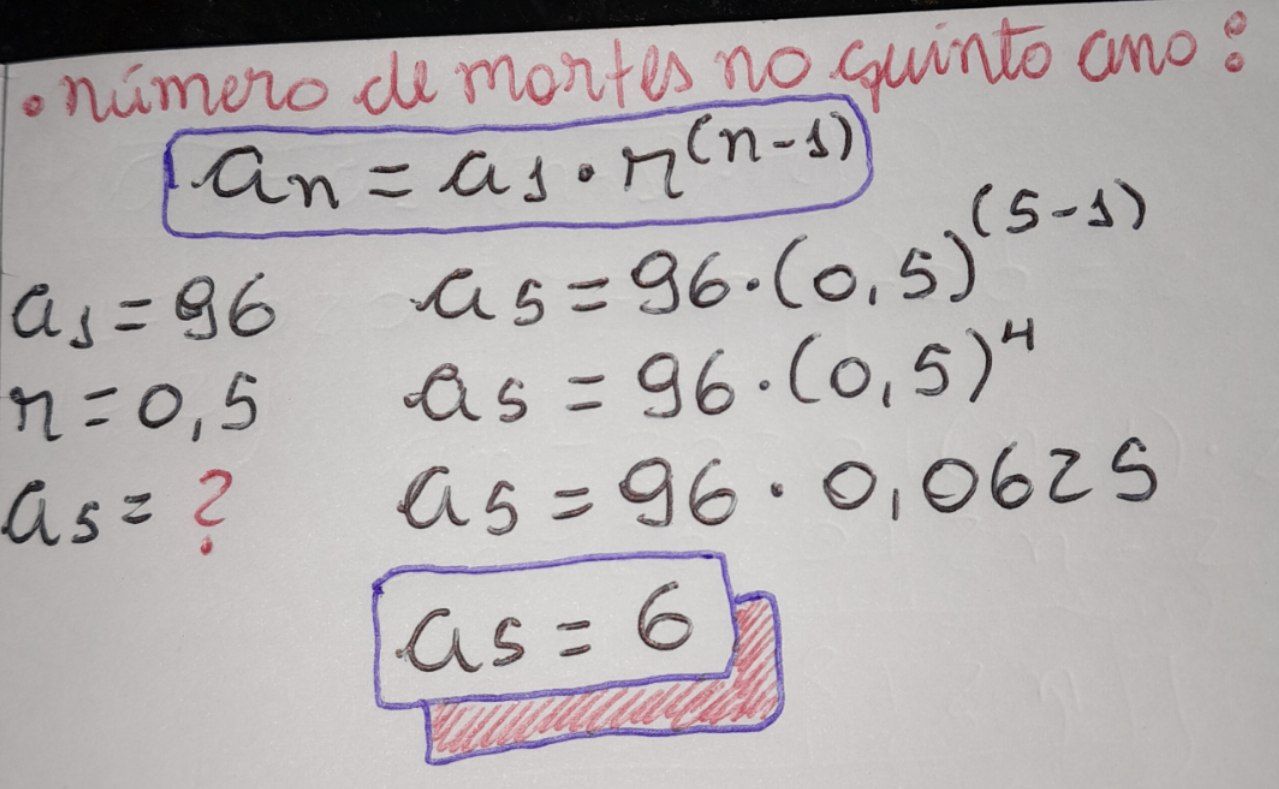 • número de mortes no quinto ano:
an = a1 · r^(n-1)
a1 = 96
a5 = 96 · (0,5)^(5-1)
r = 0,5
a5 = 96 · (0,5)^4
a5 = ?
a5 = 96 · 0,0625
a5 = 6